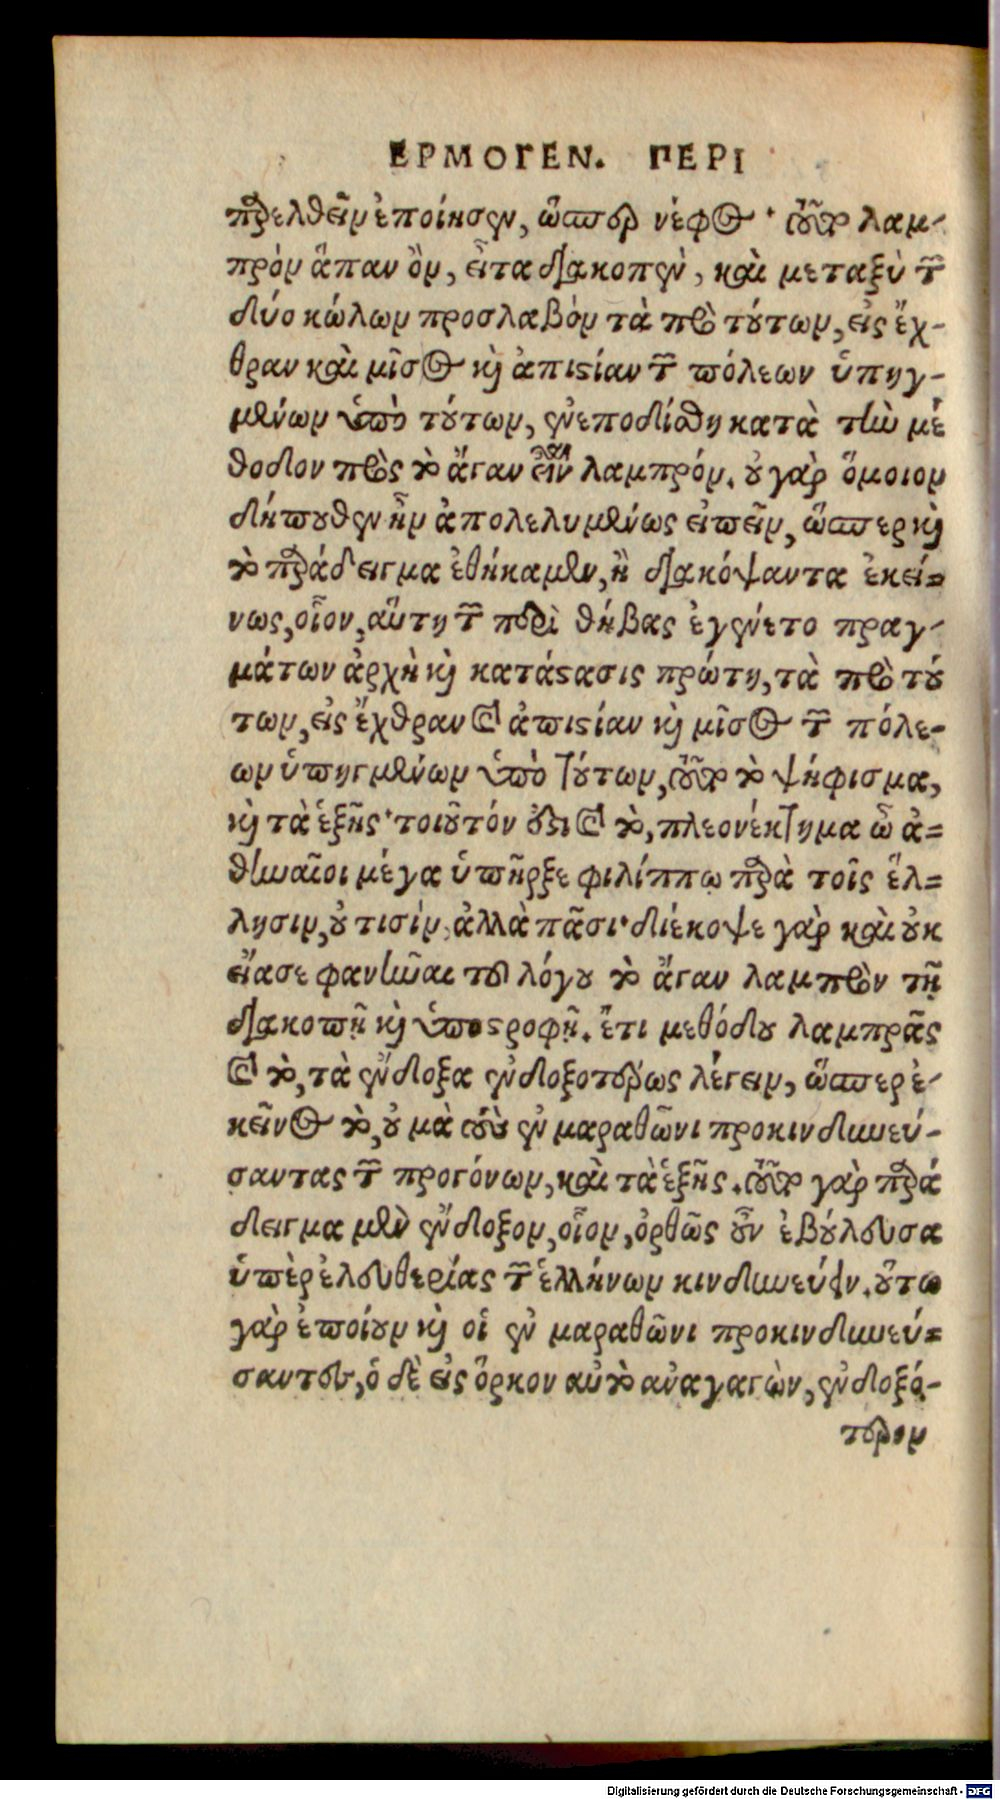 ΕΡΜΟΓΕΝ. ΠΕΡΙ
παρελθεῖν ἐποίησεν, ὥσπερ νέφος· τοῦτο λαμ-
πρὸν ἅπαν ὂν, εἶτα διακοπὲν, καὶ μεταξὺ τῶν
δύο κώλων προσλαβὸν τὰ πρὸ τούτων, εἰς ἔχ-
θραν καὶ μῖσος καὶ ἀπιστίαν τῶν πόλεων ὑπηγ-
μένων ὑπὸ τούτων, ἐνεποδίσθη κατὰ τὴν μέ
θοδον πρὸς τὸ ἄγαν εἶναι λαμπρόν. οὐ γὰρ ὅμοιον
δήπουθεν ἦν ἀπολελυμένως εἰπεῖν, ὥσπερ καὶ
τὸ παράδειγμα ἐθήκαμεν, ἢ διακόψαντα ἐκεί=
νως, οἷον, αὕτη τῶν περὶ θήβας ἐγένετο πραγ-
μάτων ἀρχὴ καὶ κατάστασις πρώτη, τὰ πρὸ τού
των, εἰς ἔχθραν καὶ ἀπιστίαν καὶ μῖσος τῶν πόλε-
ων ὑπηγμένων ὑπὸ τούτων, τοῦτο τὸ ψήφισμα,
καὶ τὰ ἑξῆς· τοιοῦτόν ἐστι καὶ τὸ, πλεονέκτημα ὦ ἀ=
θηναῖοι μέγα ὑπῆρξε φιλίππῳ παρὰ τοῖς ἕλ=
λησιν, οὐ τισὶν, ἀλλὰ πᾶσι· διέκοψε γὰρ καὶ οὐκ
εἴασε φανῆναι τοῦ λόγου τὸ ἄγαν λαμπρὸν τῇ
διακοπῇ καὶ ὑποστροφῇ. ἔτι μεθόδου λαμπρᾶς
καὶ τὸ, τὰ ἔνδοξα ἐνδοξοτέρως λέγειν, ὥσπερ ἐ-
κεῖνος τὸ, οὐ μὰ τοὺς ἐν μαραθῶνι προκινδυνεύ-
σαντας τῶν προγόνων, καὶ τὰ ἑξῆς. τοῦτο γὰρ παρά
δειγμα μὲν ἔνδοξον, οἷον, ὀρθῶς οὖν ἐβούλευσα
ὑπὲρ ἐλευθερίας τῶν ἑλλήνων κινδυνεύειν. οὕτω
γὰρ ἐποίουν καὶ οἱ ἐν μαραθῶνι προκινδυνεύ=
σαντες, ὁ δὲ εἰς ὅρκον αὐτὸ ἀναγαγὼν, ἐνδοξό-
τερον
Digitalisierung gefördert durch die Deutsche Forschungsgemeinschaft - DFG